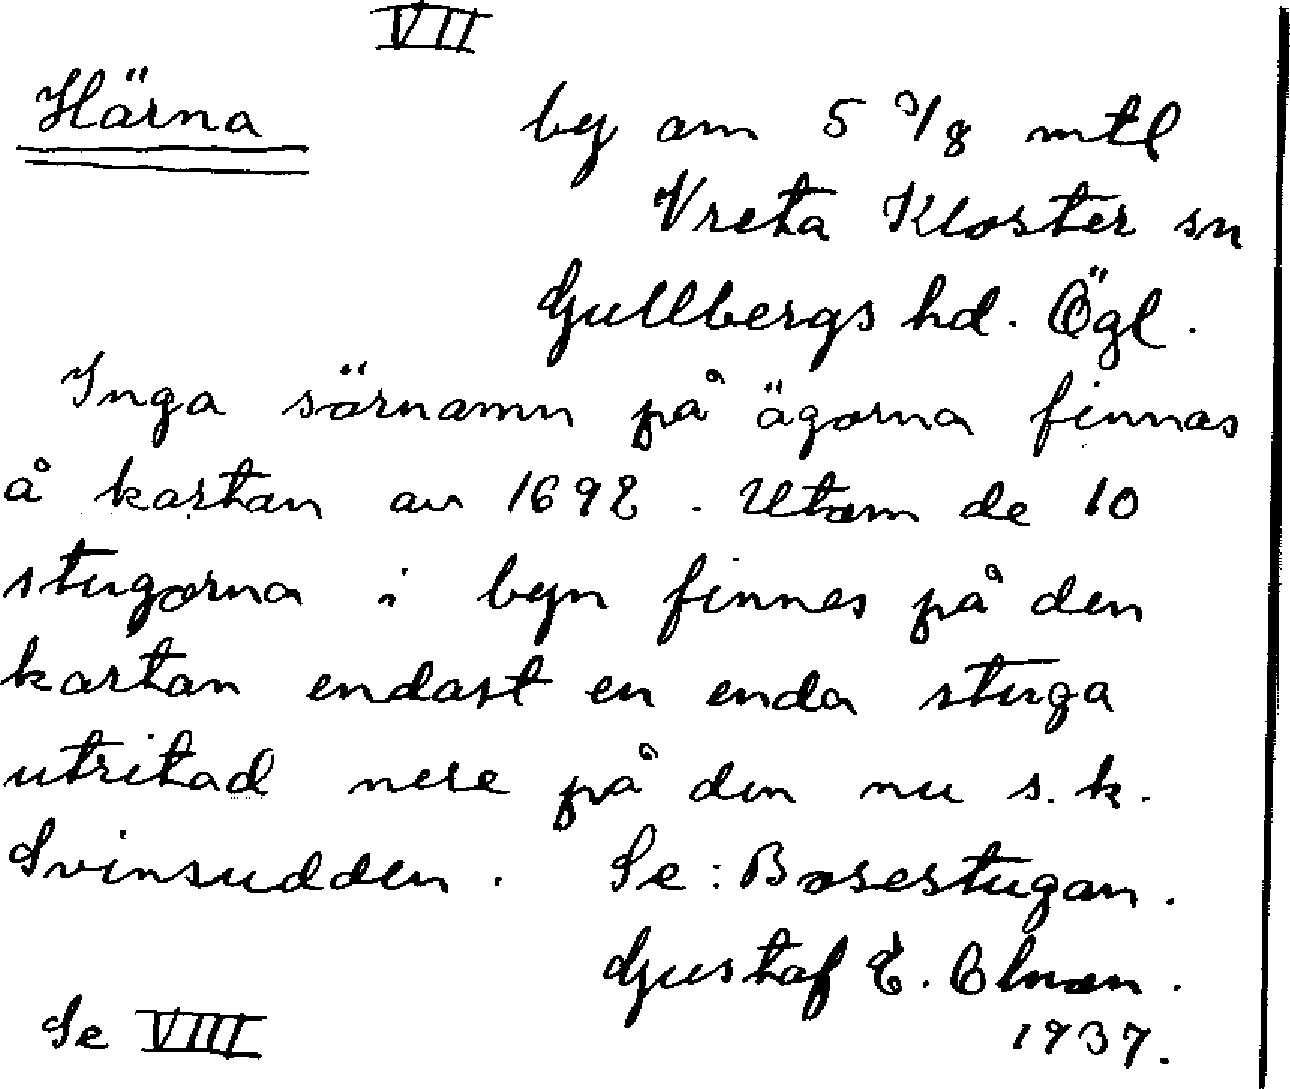 VII
Härna by om 5 3/8 mtl
Vreta Kloster sn
Gullbergs hd. Ögl.
Inga särnamn på ägorna finnas
å kartan av 1692. Utom de 10
stugorna i byn finnes på den
kartan endast en enda stuga
utritad nere på den nu s. k.
Svinsudden. Se: Bosestugan.
Gustaf E.
1937.
Se VIII